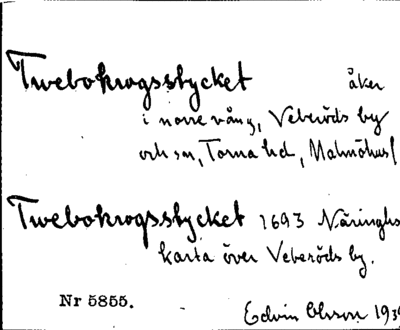 Twebokrogsstycket åker
i norre vång, Veberöds by
och sn, Torna hd, Malmöhus l
Twebokrogsstycket 1693 Näringhs
karta över Veberöds by.
Nr 5855.
Edvin Ohlson 193